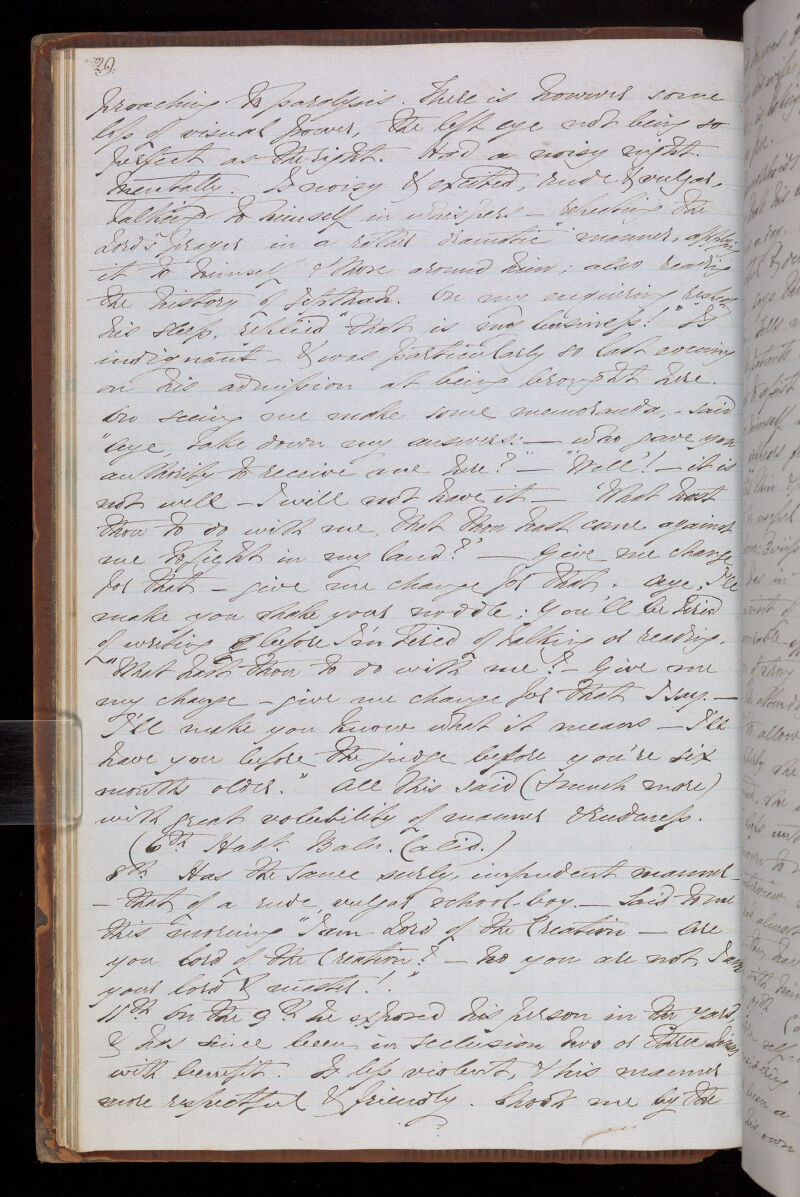 29.
proaching to paralysis. There is however some
loss of visual power, the left eye not being so
perfect as the right. Had a noisy night.
Mentally. Is noisy & excited, rude & vulgar,
talking to himself in whispers – repeating the
Lord's prayer in a rather dramatic manner, applying
it to himself & those around him; also reading
the history of Jepthah. On my enquiring respecting
his sleep, replied "that is my business!" Is
indignant – & was particularly so last evening
on his admission at being brought here.
On seeing me make some memoranda, – said
"aye, take down my answers: – who gave you
authority to receive me here?" – "Well'! – it is
not well – I will not have it – 'What hast
thou to do with me, that thou hast came against
me to fight in my land?' – Give me change
for that – give me change for that. Aye, I'll
make you shake your noddle; you'll be tired
of writing before I'm tired of talking or reading.
"What hast thou to do with me? – Give me
my change – give me change for that I say. –
I'll make you know what it means – I'll
have you before the judge before you're six
months older." All this said (& much more)
with great volubility of manner & rudeness.
(6th Habt. Baln. Calid.)
8th Has the same surly, impudent manner –
– that of a rude, vulgar school-boy. – Said to me
this morning "I am Lord of the Creation – are
you lord of the Creation? – no you are not I am
your lord & master!!"
11th On the 9th he exposed his person in the yard,
& has since been in seclusion two or three times
with benefit. Is less violent, & his manner
more respectful & friendly. Shook me by the